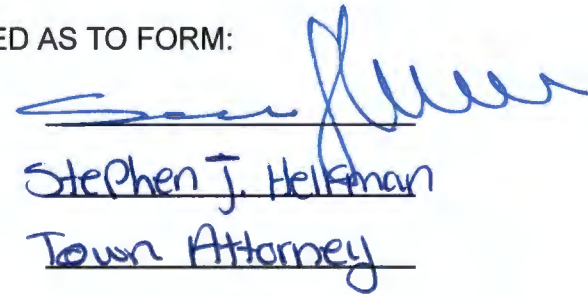 ED AS TO FORM:
Stephen J. Helfman
Town Attorney